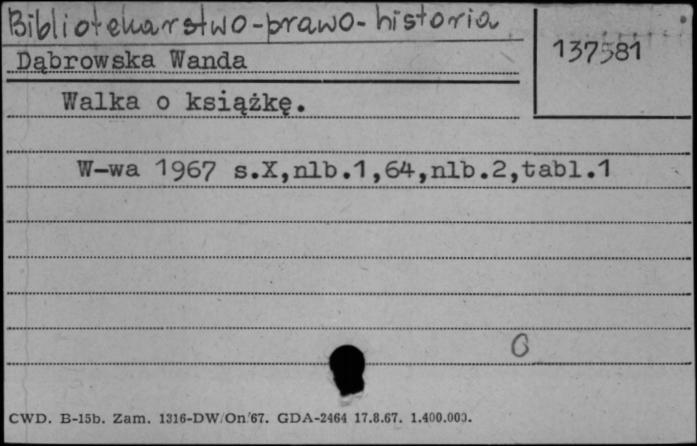 Bibliotekarstwo-prawo-historia
137581
Dąbrowska Wanda
Walka o książkę.
W-wa 1967 s.X,nlb.1,64,nlb.2,tabl.1
CWD. B-15b. Zam. 1316-DW/On/67. GDA-2464 17.8.67. 1.400.000.